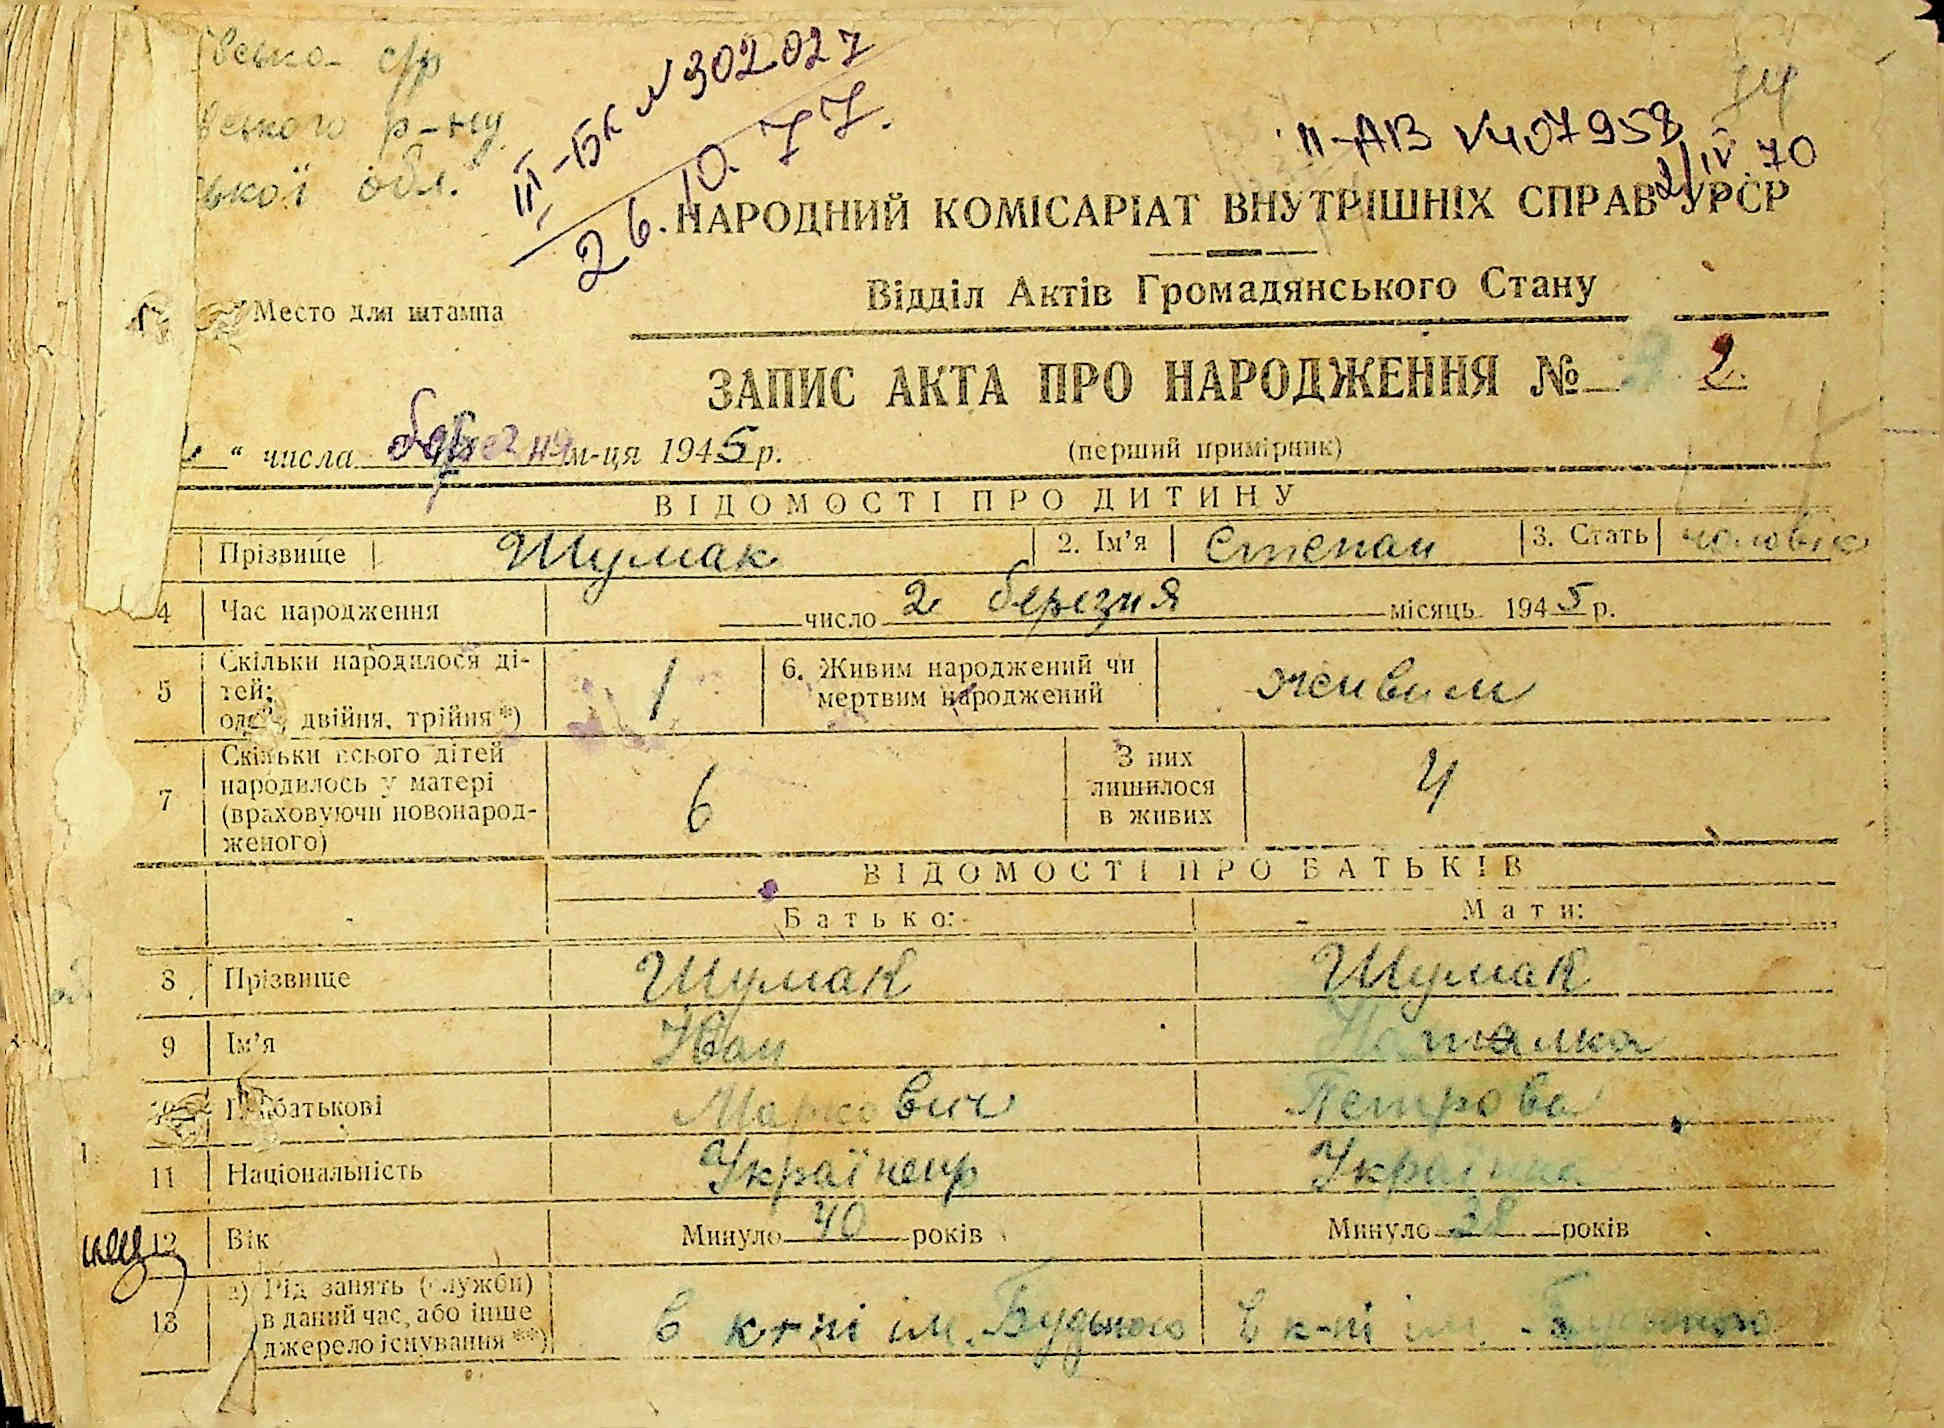 ІІІ-БК № 302027
26.10.77.
II-АВ №407958
2/IV 70
с/р
р-ну
обл.
НАРОДНИЙ КОМІСАРІАТ ВНУТРІШНІХ СПРАВ УРСР
Відділ Актів Громадянського Стану
Место для штампа
ЗАПИС АКТА ПРО НАРОДЖЕННЯ № 2.
" числа березня м-ця 1945 р.
(перший примірник)
ВІДОМОСТІ ПРО ДИТИНУ
Прізвище Шумак 2. Ім'я Степан 3. Стать чоловік
4 Час народження число 2 березня місяць 1945 р.
5 Скільки народилося ді-
тей;
двійня, трійня *) 1
6. Живим народжений чи
мертвим народжений живим
7 Скільки всього дітей
народилось у матері
(враховуючи новонарод-
женого) 6
З них
лишилося
в живих 4
ВІДОМОСТІ ПРО БАТЬКІВ
Батько: Мати:
8 Прізвище Шумак Шумак
9 Ім'я Іван Наталка
По батькові Маркович Петрова
11 Національність Українець Українка
12 Вік Минуло 40 років Минуло 38 років
13 а) Рід занять (служби)
в даний час, або інше
джерело існування **)
в к-пі ім. Будьоного в к-пі ім. Будьоного